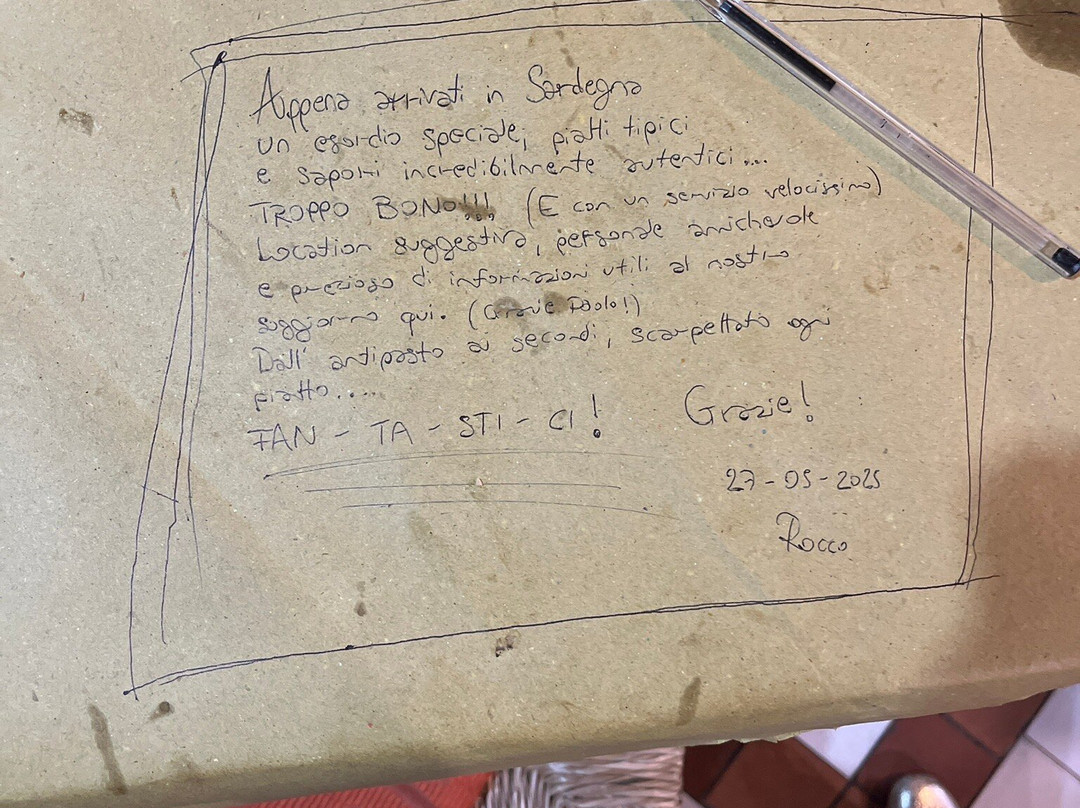 Appena arrivati in Sardegna
un esordio speciale, piatti tipici
e sapori incredibilmente autentici...
TROPPO BONO!!! (E con un servizio velocissimo)
Location suggestiva, personale amichevole
e prezioso di informazioni utili al nostro
soggiorno qui. (Grazie Paolo!)
Dall' antipasto ai secondi, scarpettato ogni
piatto....
FAN - TA - STI - CI !
Grazie!
27-05-2025
Rocco